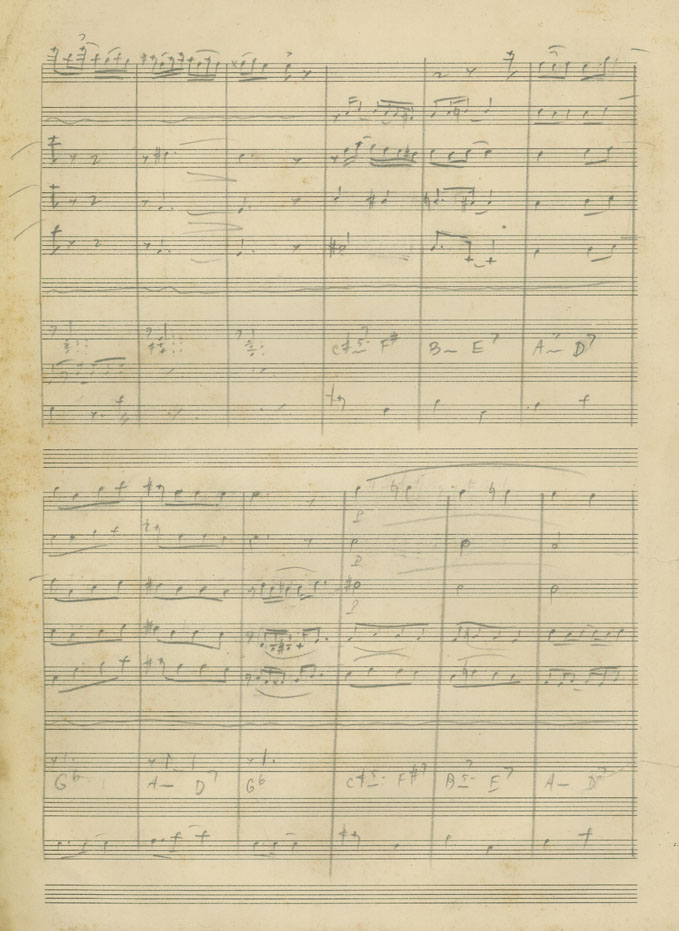 C#-5 7 F#
B- E7
A- D7
G6
A- D7
G6
C#-5 F#7
B-5 7 E7
A- D7